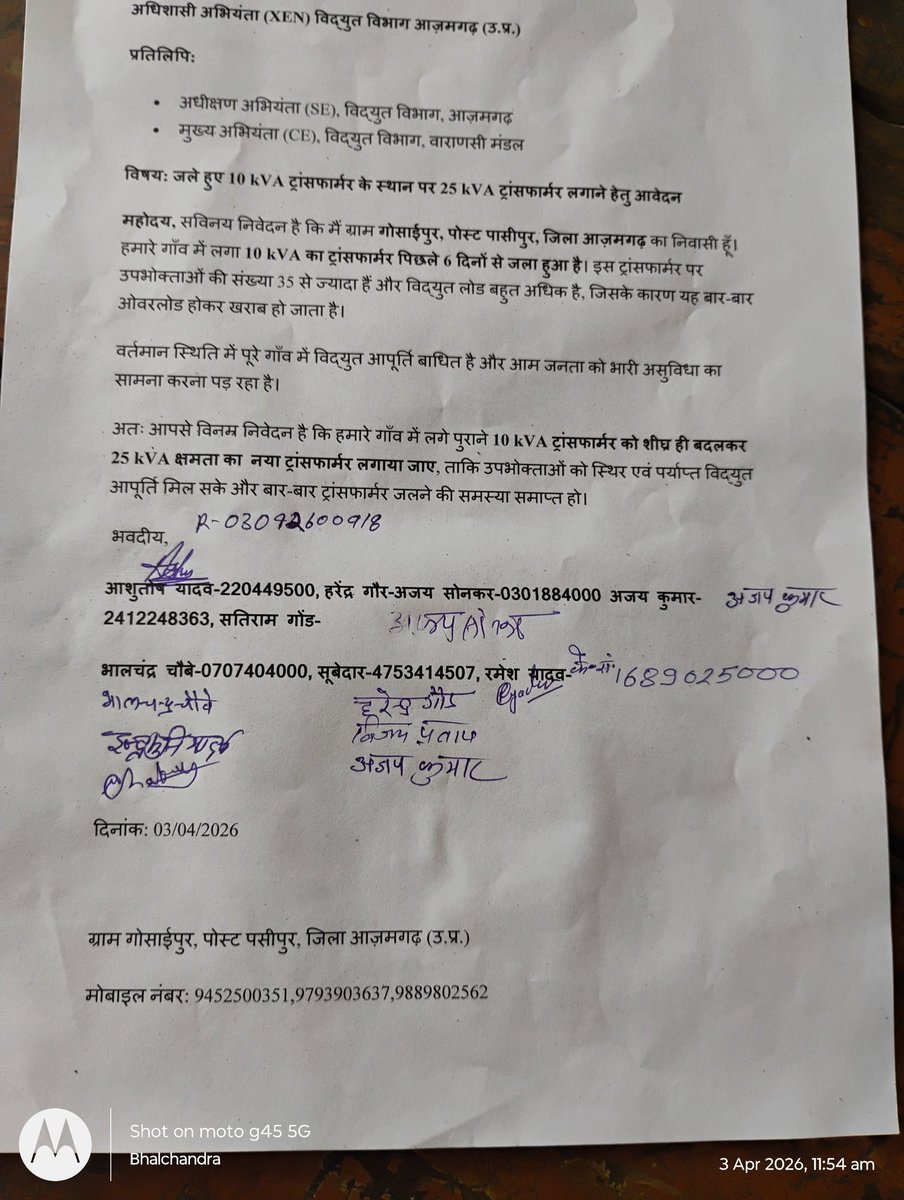 अधिशासी अभियंता (XEN) विद्युत विभाग आज़मगढ़ (उ.प्र.)
प्रतिलिपि:
• अधीक्षण अभियंता (SE), विद्युत विभाग, आज़मगढ़
• मुख्य अभियंता (CE), विद्युत विभाग, वाराणसी मंडल
विषय: जले हुए 10 kVA ट्रांसफार्मर के स्थान पर 25 kVA ट्रांसफार्मर लगाने हेतु आवेदन
महोदय, सविनय निवेदन है कि मैं ग्राम गोसाईपुर, पोस्ट पासीपुर, जिला आज़मगढ़ का निवासी हूँ।
हमारे गाँव में लगा 10 kVA का ट्रांसफार्मर पिछले 6 दिनों से जला हुआ है। इस ट्रांसफार्मर पर
उपभोक्ताओं की संख्या 35 से ज्यादा हैं और विद्युत लोड बहुत अधिक है, जिसके कारण यह बार-बार
ओवरलोड होकर खराब हो जाता है।
वर्तमान स्थिति में पूरे गाँव में विद्युत आपूर्ति बाधित है और आम जनता को भारी असुविधा का
सामना करना पड़ रहा है।
अतः आपसे विनम्र निवेदन है कि हमारे गाँव में लगे पुराने 10 kVA ट्रांसफार्मर को शीघ्र ही बदलकर
25 kVA क्षमता का नया ट्रांसफार्मर लगाया जाए, ताकि उपभोक्ताओं को स्थिर एवं पर्याप्त विद्युत
आपूर्ति मिल सके और बार-बार ट्रांसफार्मर जलने की समस्या समाप्त हो।
R-03092600918
भवदीय,
आशुतोष यादव-220449500, हरेंद्र गौर-अजय सोनकर-0301884000 अजय कुमार- अजय कुमार
2412248363, सतिराम गोंड-
भालचंद्र चौबे-0707404000, सूबेदार-4753414507, रमेश यादव- 1689025000
भालचन्द्र चौबे हरेन्द्र गौड
विजय प्रताप
अजय कुमार
दिनांक: 03/04/2026
ग्राम गोसाईपुर, पोस्ट पसीपुर, जिला आज़मगढ़ (उ.प्र.)
मोबाइल नंबर: 9452500351,9793903637,9889802562
Shot on moto g45 5G
Bhalchandra
3 Apr 2026, 11:54 am